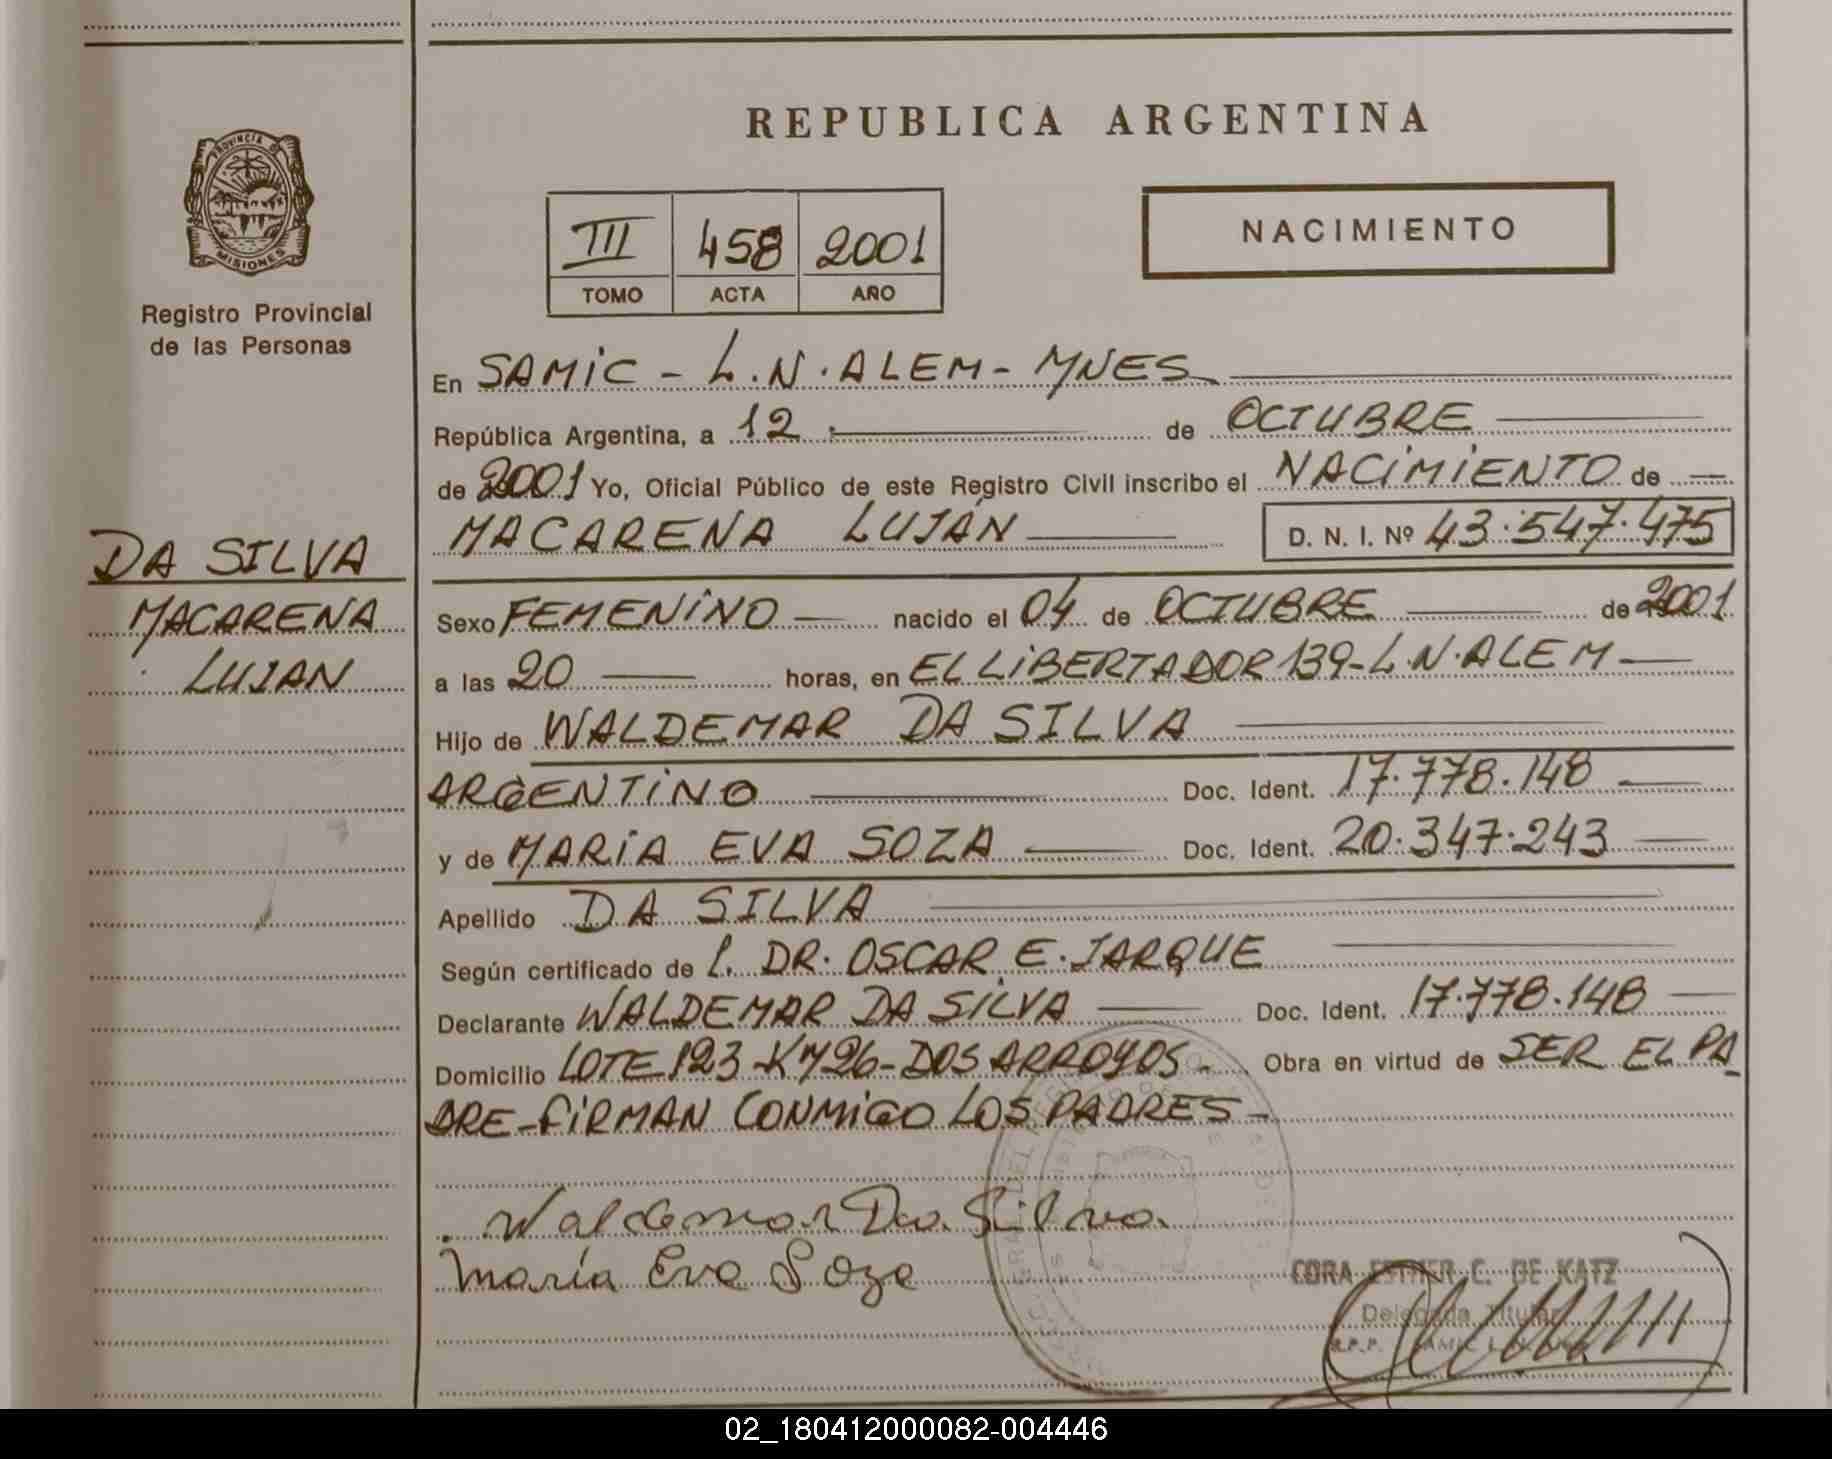 REPUBLICA ARGENTINA
PROVINCIA D
MISIONES
Registro Provincial
de las Personas
III 458 2001
TOMO ACTA AÑO
NACIMIENTO
En SAMiC - L.N. ALEM - MNES
República Argentina, a 12 de OCTUBRE
de 2001 Yo, Oficial Público de este Registro Civil inscribo el NACiMiENTO de
MACARENA LUJÁN D. N. I. Nº 43.547.475
DA SILVA
MACARENA
LUJAN
Sexo FEMENiNO nacido el 04 de OCTUBRE de 2001
a las 20 horas, en EL LiBERTADOR 139-L.N.ALEM
Hijo de WALDEMAR DA SILVA
ARGENTiNO Doc. Ident. 17.778.148
y de MARiA EVA SOZA Doc. Ident. 20.347.243
Apellido DA SILVA
Según certificado de l. DR. OSCAR E. JARQUE
Declarante WALDEMAR DA SiLVA Doc. Ident. 17.778.148
Domicilio LOTE 123 - KM26 - DOS ARROYOS - Obra en virtud de SER EL PA
DRE - FiRMAN CONMiGO LOS PADRES -
Waldemar Da Silva
María Eva Soza
CORA ESTHER C. DE KATZ
Delegada Titular
02_180412000082-004446